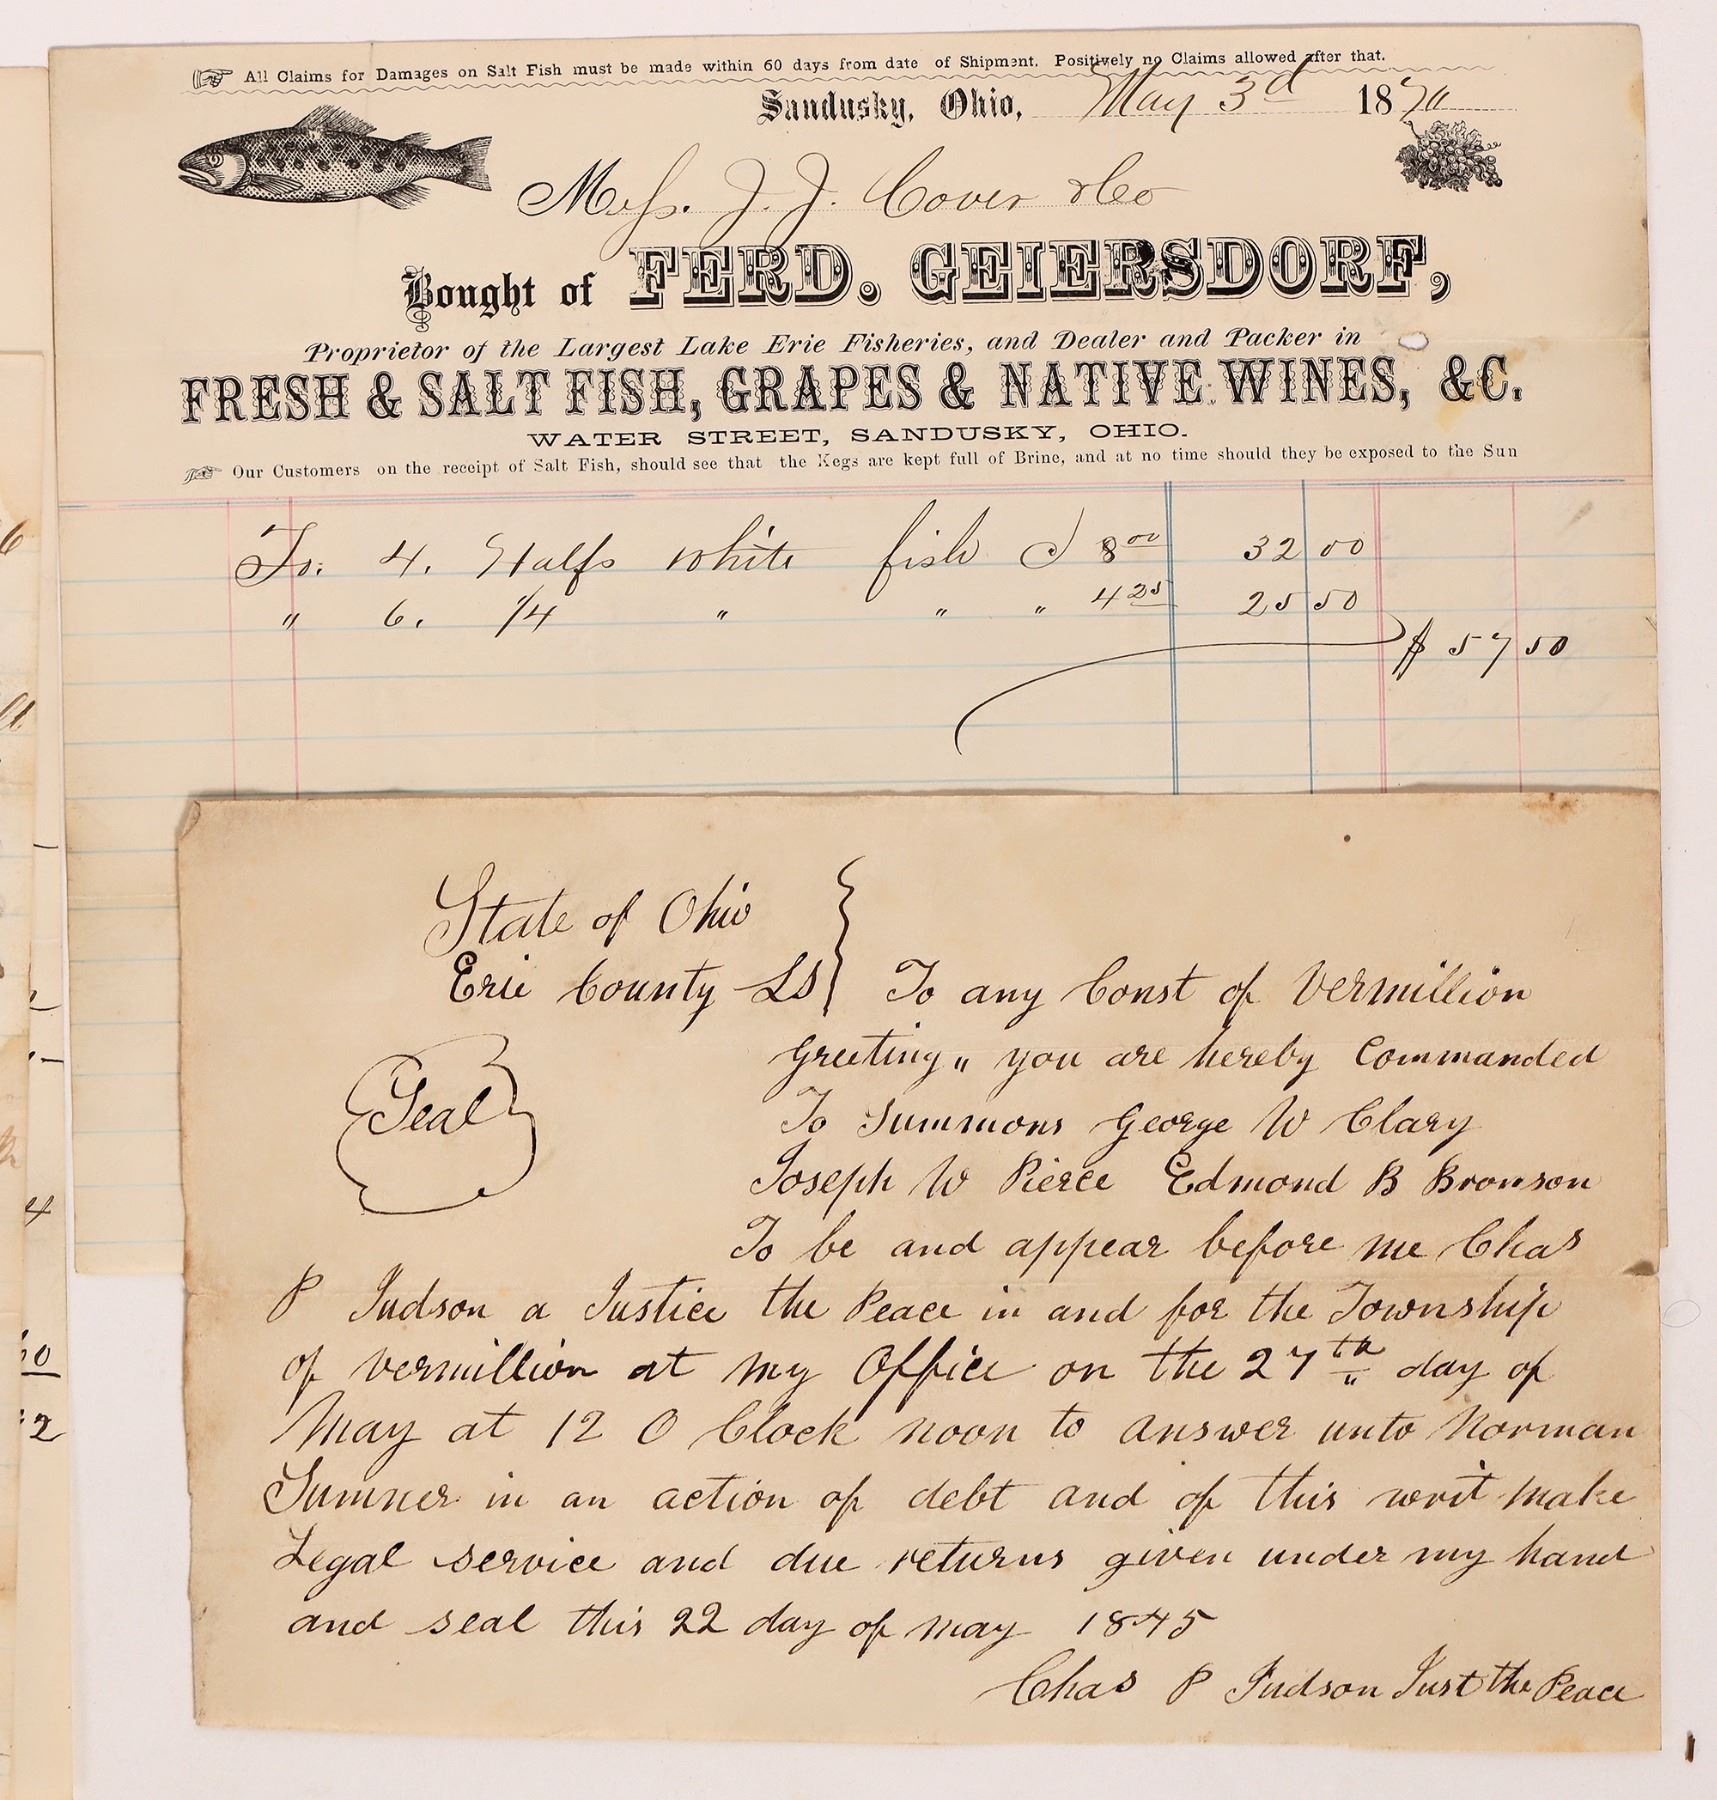 All Claims for Damages on Salt Fish must be made within 60 days from date of Shipment. Positively no Claims allowed after that.
Sandusky, Ohio, May 3d 1870
Mess. J. J. Cover & Co
Bought of FERD. GEIERSDORF,
Proprietor of the Largest Lake Erie Fisheries, and Dealer and Packer in
FRESH & SALT FISH, GRAPES & NATIVE WINES, &C.
WATER STREET, SANDUSKY, OHIO.
Our Customers on the receipt of Salt Fish, should see that the Kegs are kept full of Brine, and at no time should they be exposed to the Sun
To: 4. Halfs White fish 8 00 32 00
" 6. 1/4 " " " 4 25 25 50
$ 57 50
State of Ohio
Erie County LS To any Const of Vermillion
Greeting,, you are hereby Commanded
Seal
To Summons George W Clary
Joseph W Pierce Edmond B Bronson
To be and appear before me Chas
P Judson a Justice the Peace in and for the Township
of Vermillion at my Office on the 27th day of
May at 12 O Clock noon to answer unto Norman
Sumner in an action of debt and of this writ make
Legal service and due returns given under my hand
and seal this 22 day of May 1845
Chas P Judson Just the Peace